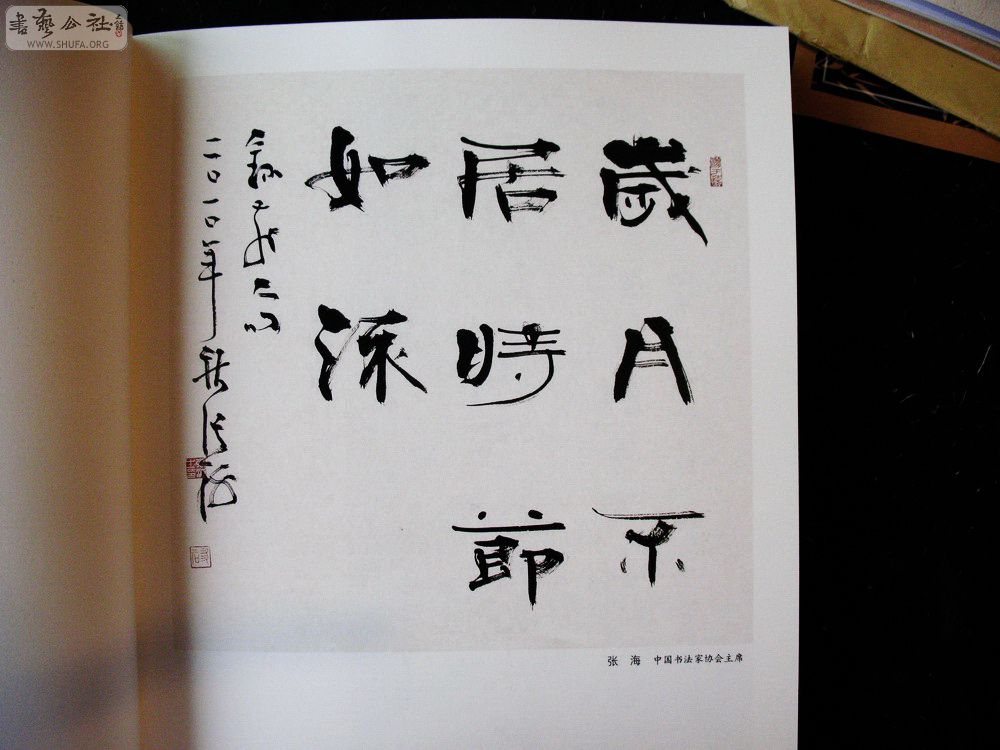 書藝公社
WWW.SHUFA.ORG
歲月不
居時節
如流
二〇一〇年秋張海
张 海 中国书法家协会主席